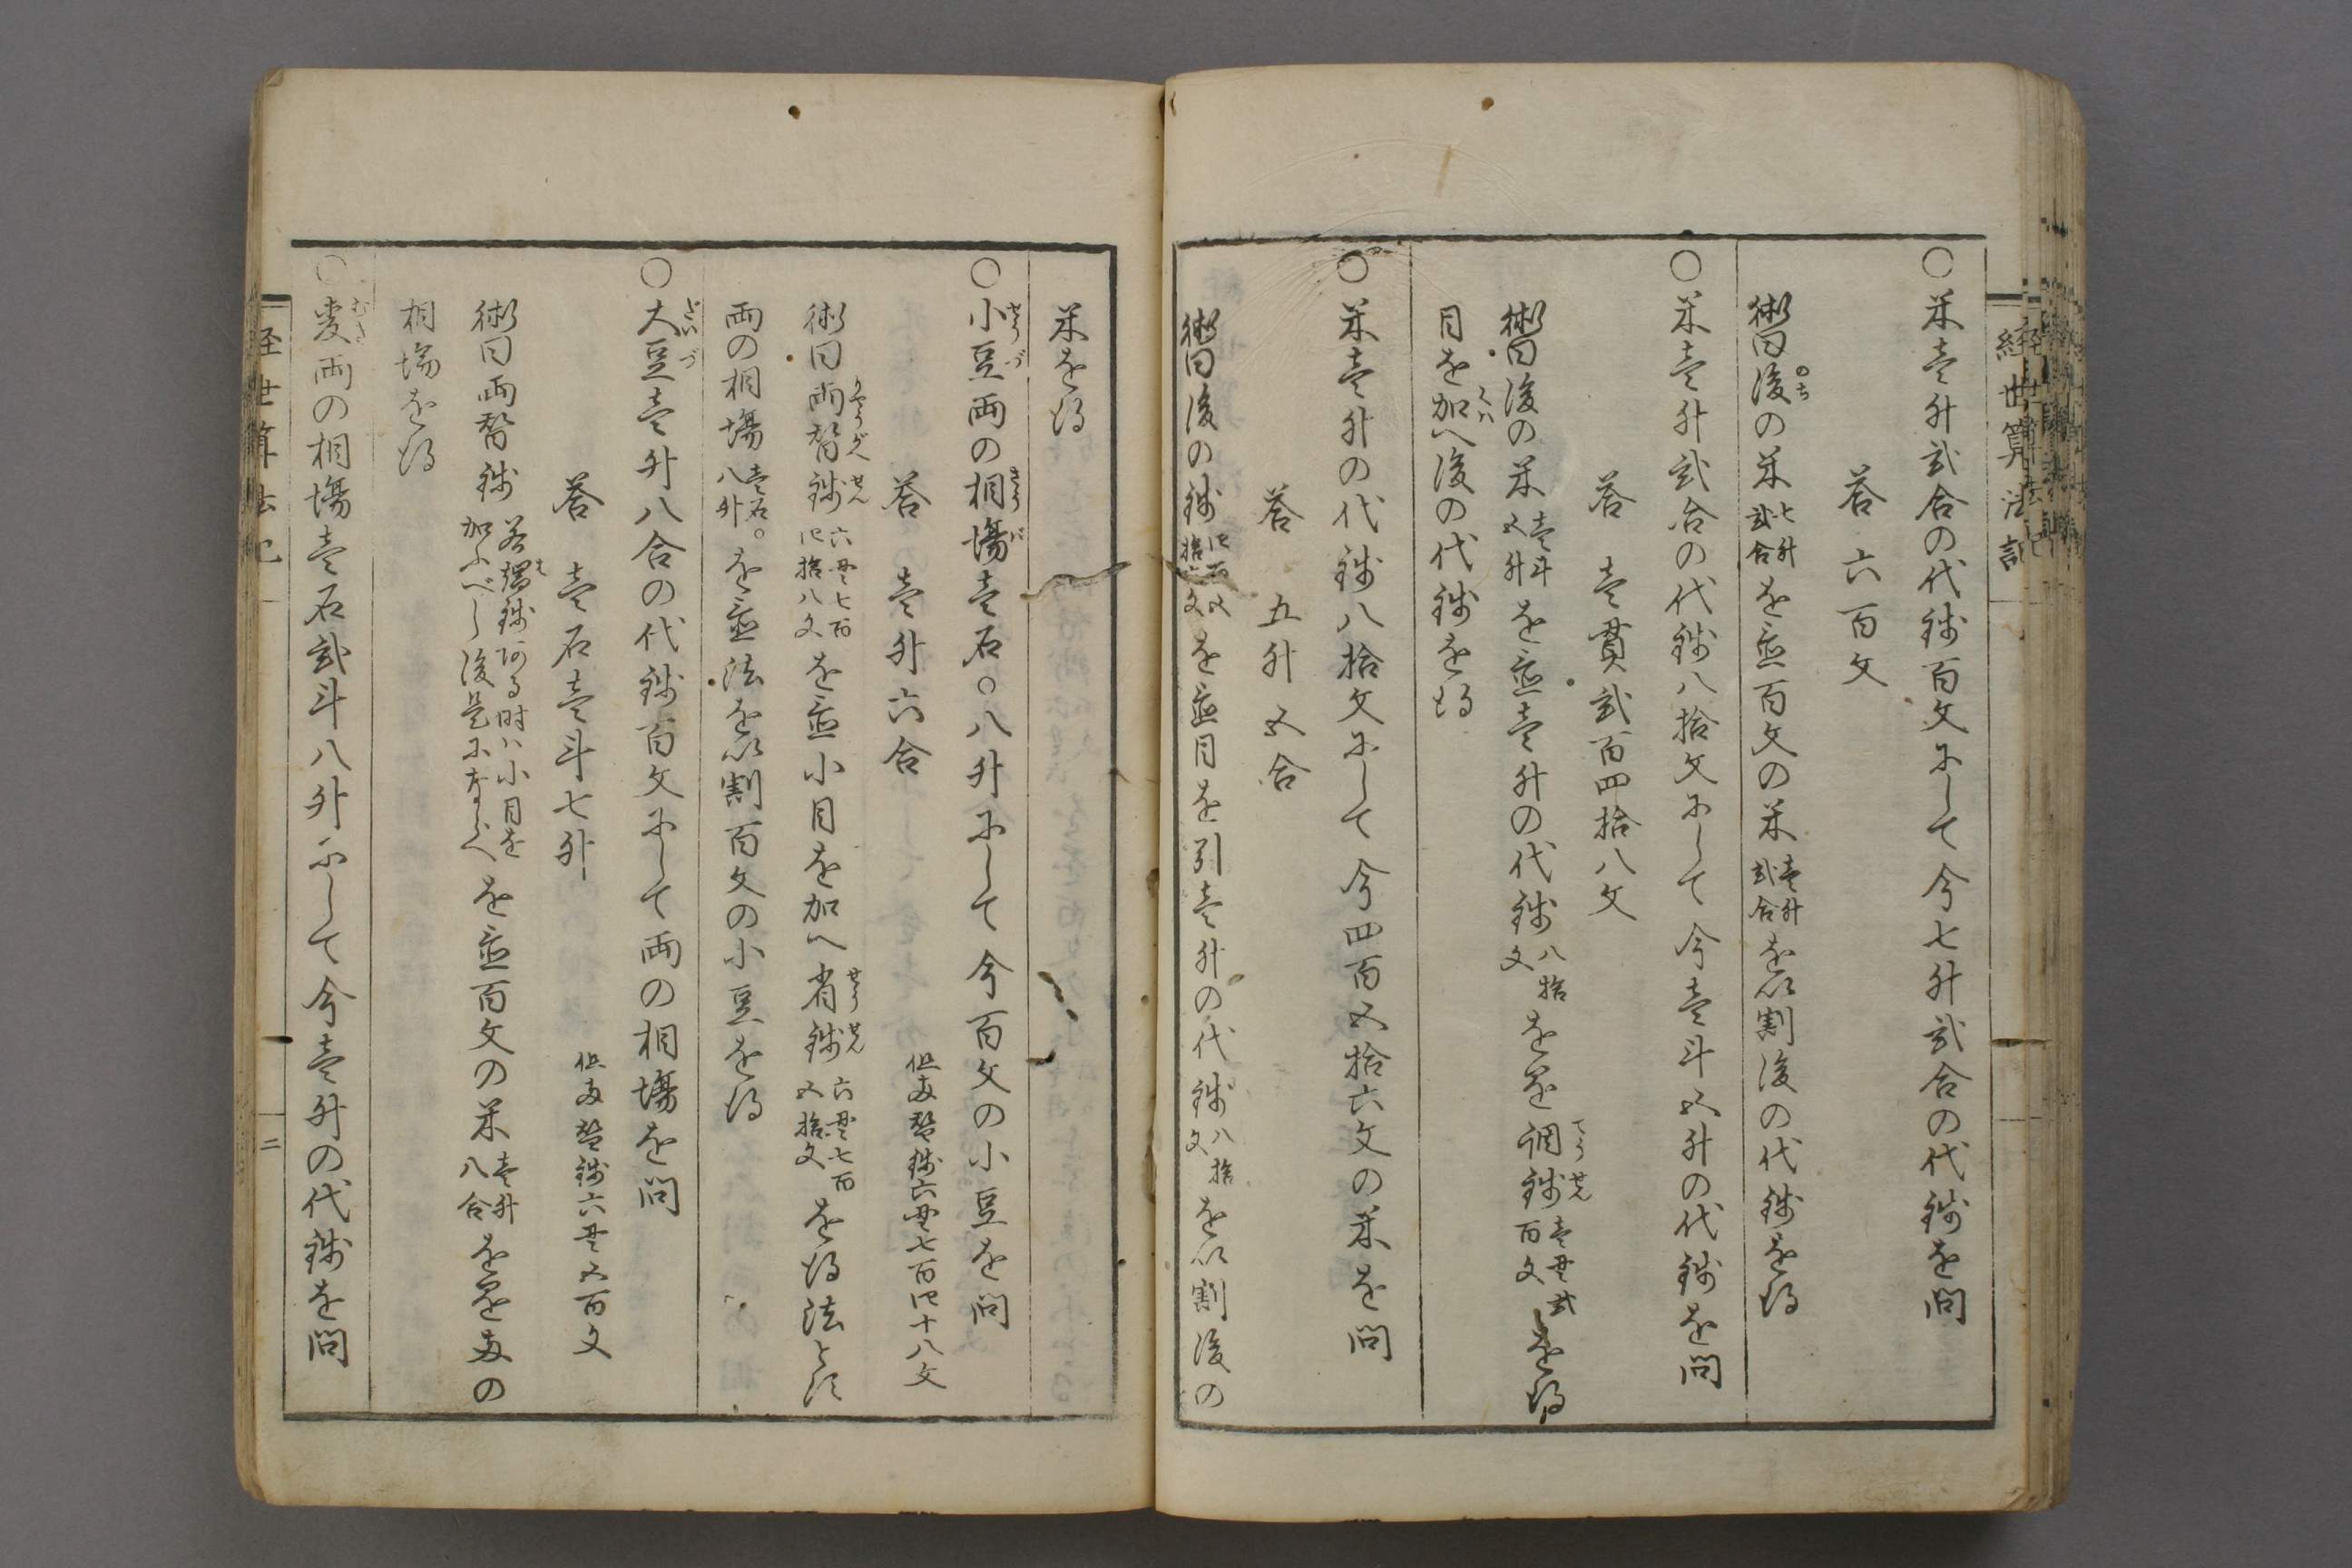 ○米壱升弐合の代銭百文にして今七升弐合の代銭を問
答 六百文
術曰後の米七升弐合を置百文の米壱升弐合を以割後の代銭を得
○米壱升弐合の代銭八拾文にして今壱斗五升の代銭を問
答 壱貫弐百四拾八文
術曰後の米壱斗五升を置壱升の代銭八拾文を乗調銭壱貫弐百文を得
目を加へ後の代銭を得
○米壱升の代銭八拾文にして今四百五拾六文の米を問
答 五升五合
術曰後の銭四百五拾六文を置目を引壱升の代銭八拾文を以割後の
米を得
○小豆両の相場壱石〇八升にして今百文の小豆を問
答 壱升六合 但両替銭六貫七百四十八文
術曰両替銭六貫七百四拾八文を置小目を加へ省銭六貫七百五拾文を得法とす
両の相場壱石〇八升を置法を以割百文の小豆を得
○大豆壱升八合の代銭百文にして両の相場を問
答 壱石壱斗七升 但両替銭六貫五百文
術曰両替銭若端銭ある時ハ小目を加ふべし後是にならへを置百文の米壱升八合を乗両の
相場を得
○麦両の相場壱石弐斗八升にして今壱升の代銭を問
経世算法記
二
経世算法記